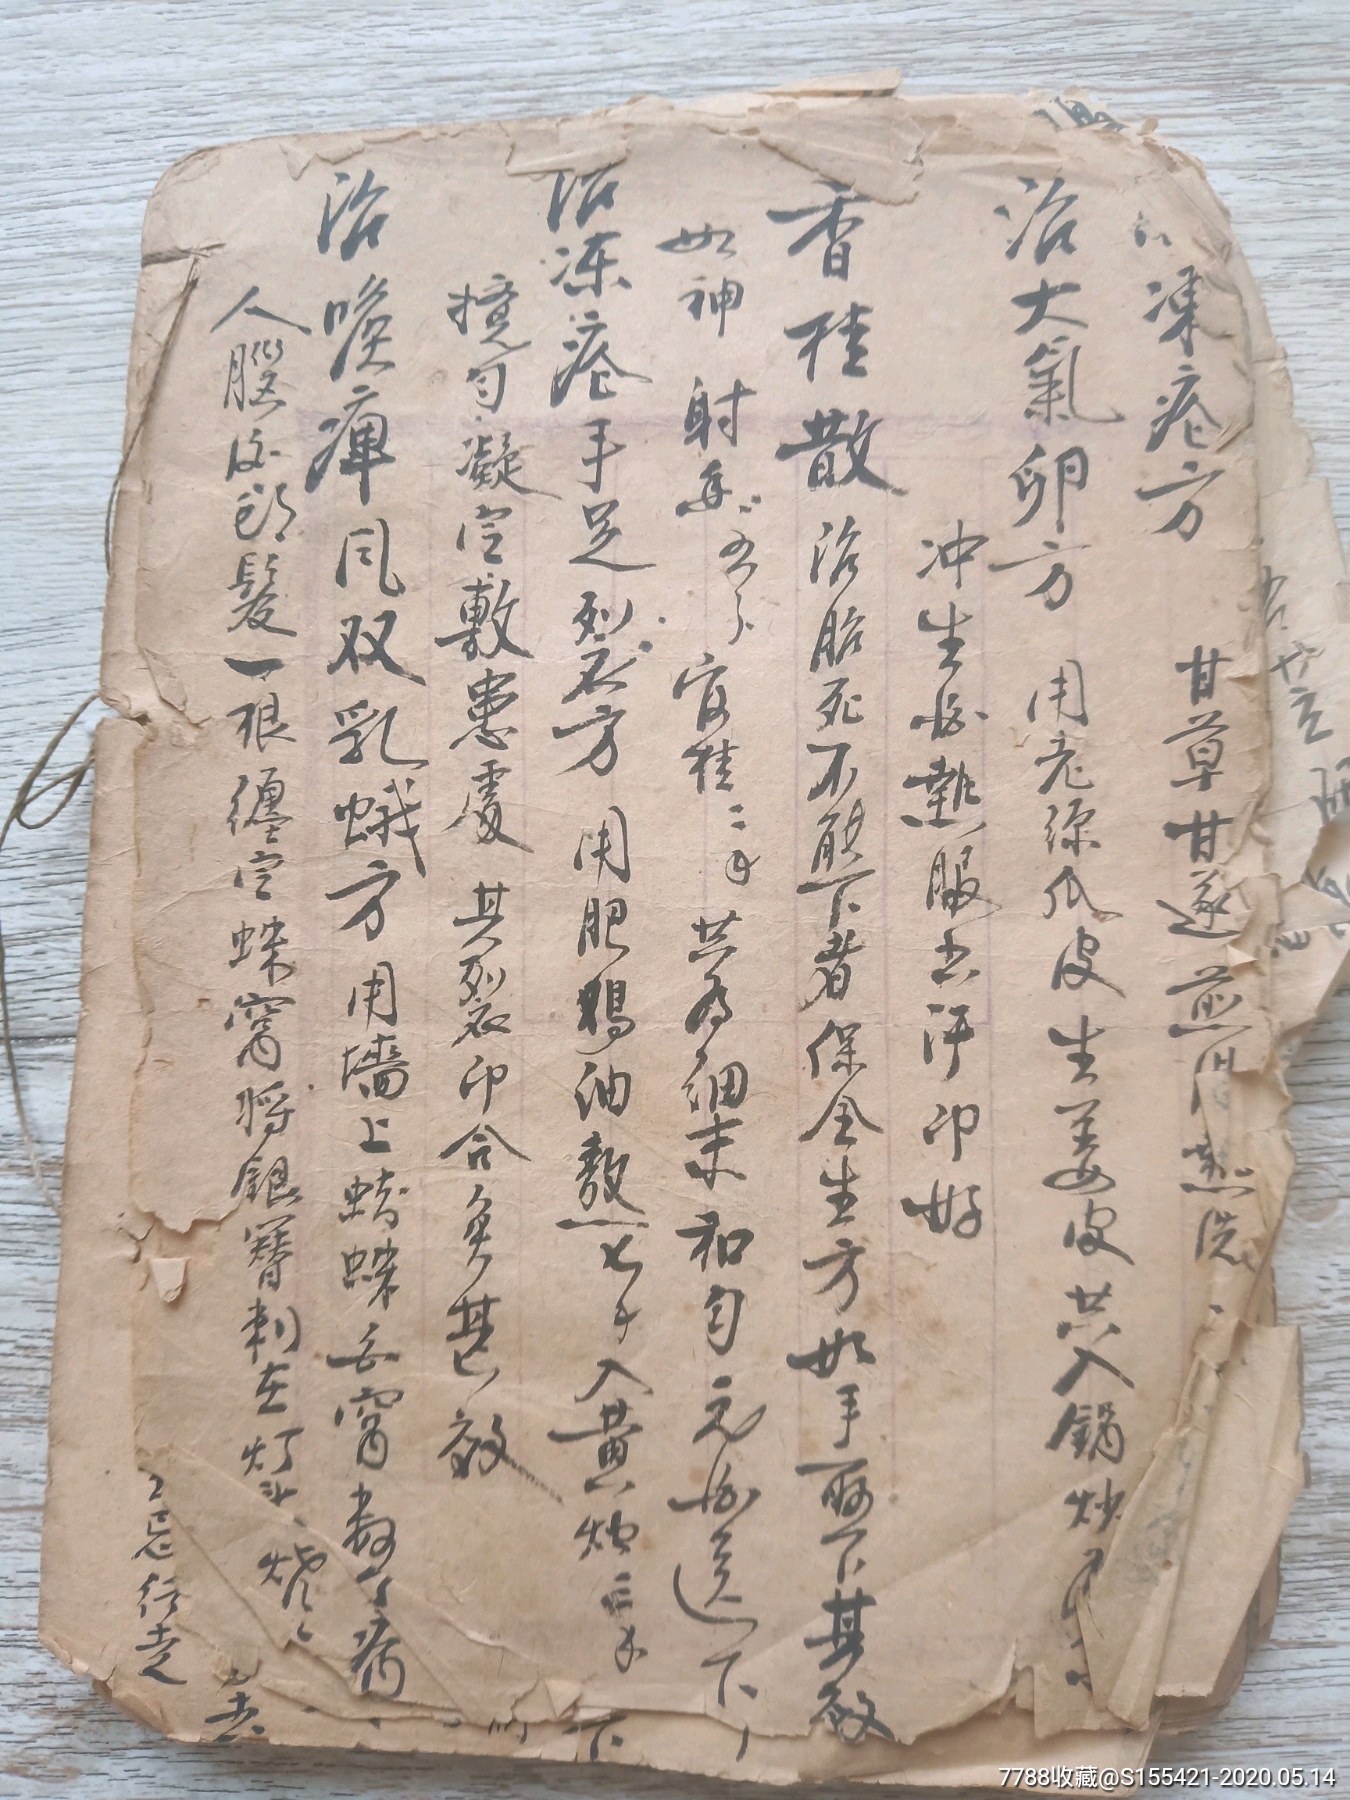 凍瘡方 甘草甘遂煎湯熱洗
治大氣卵方 用老絲瓜皮生姜皮共入鍋炒
冲生酒熱服出汗印好
香桂散 治胎死不能下者保全生方如手取下其效
如神 射香五分 官桂二錢 共為細末和勻 元酒送下
治凍瘡手足裂方 用肥鵝油熬一七 入黄灿二錢 下
攪勻凝定敷患處 其裂印合矣甚效
治喉痺風双乳蛾方 用墙上蜘蛛白窩數个 病
人腦後髮一根纏定蛛窩將銀簪刺在灯头 燒 去
忌行走
7788收藏@S155421-2020.05.14